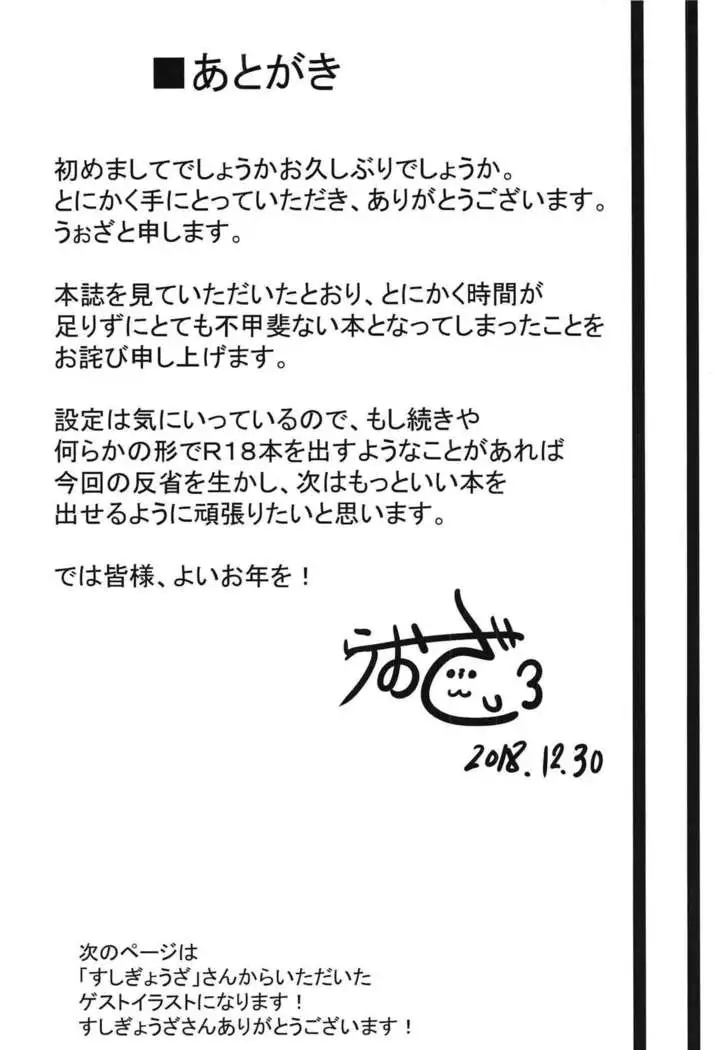 ■あとがき
初めましてでしょうかお久しぶりでしょうか。
とにかく手にとっていただき、ありがとうございます。
うぉざと申します。
本誌を見ていただいたとおり、とにかく時間が
足りずにとても不甲斐ない本となってしまったことを
お詫び申し上げます。
設定は気にいっているので、もし続きや
何らかの形でR18本を出すようなことがあれば
今回の反省を生かし、次はもっといい本を
出せるように頑張りたいと思います。
では皆様、よいお年を!
うぉざ
2018.12.30
次のページは
「すしぎょうざ」さんからいただいた
ゲストイラストになります!
すしぎょうざさんありがとうございます!